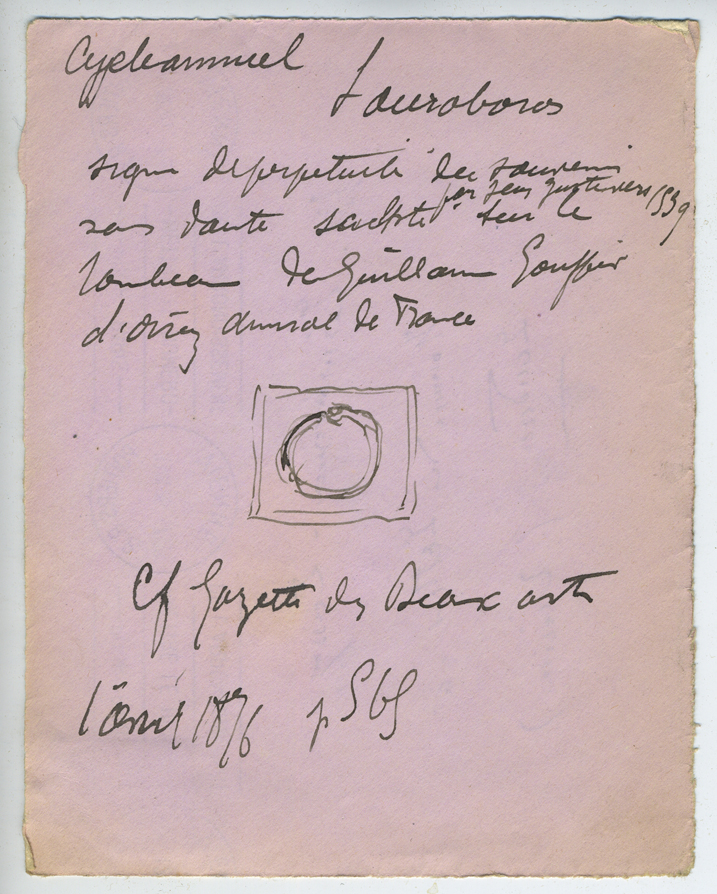 Cycle annuel
L'ouroboros
signe de perpétuité du souvenir
sans doute sculpté par Jean vers 1539 sur le
tombeau de Guillaume Gouffier
d'Oirey amiral de France
Cf Gazette des Beaux arts
1 avril 1876 p 565